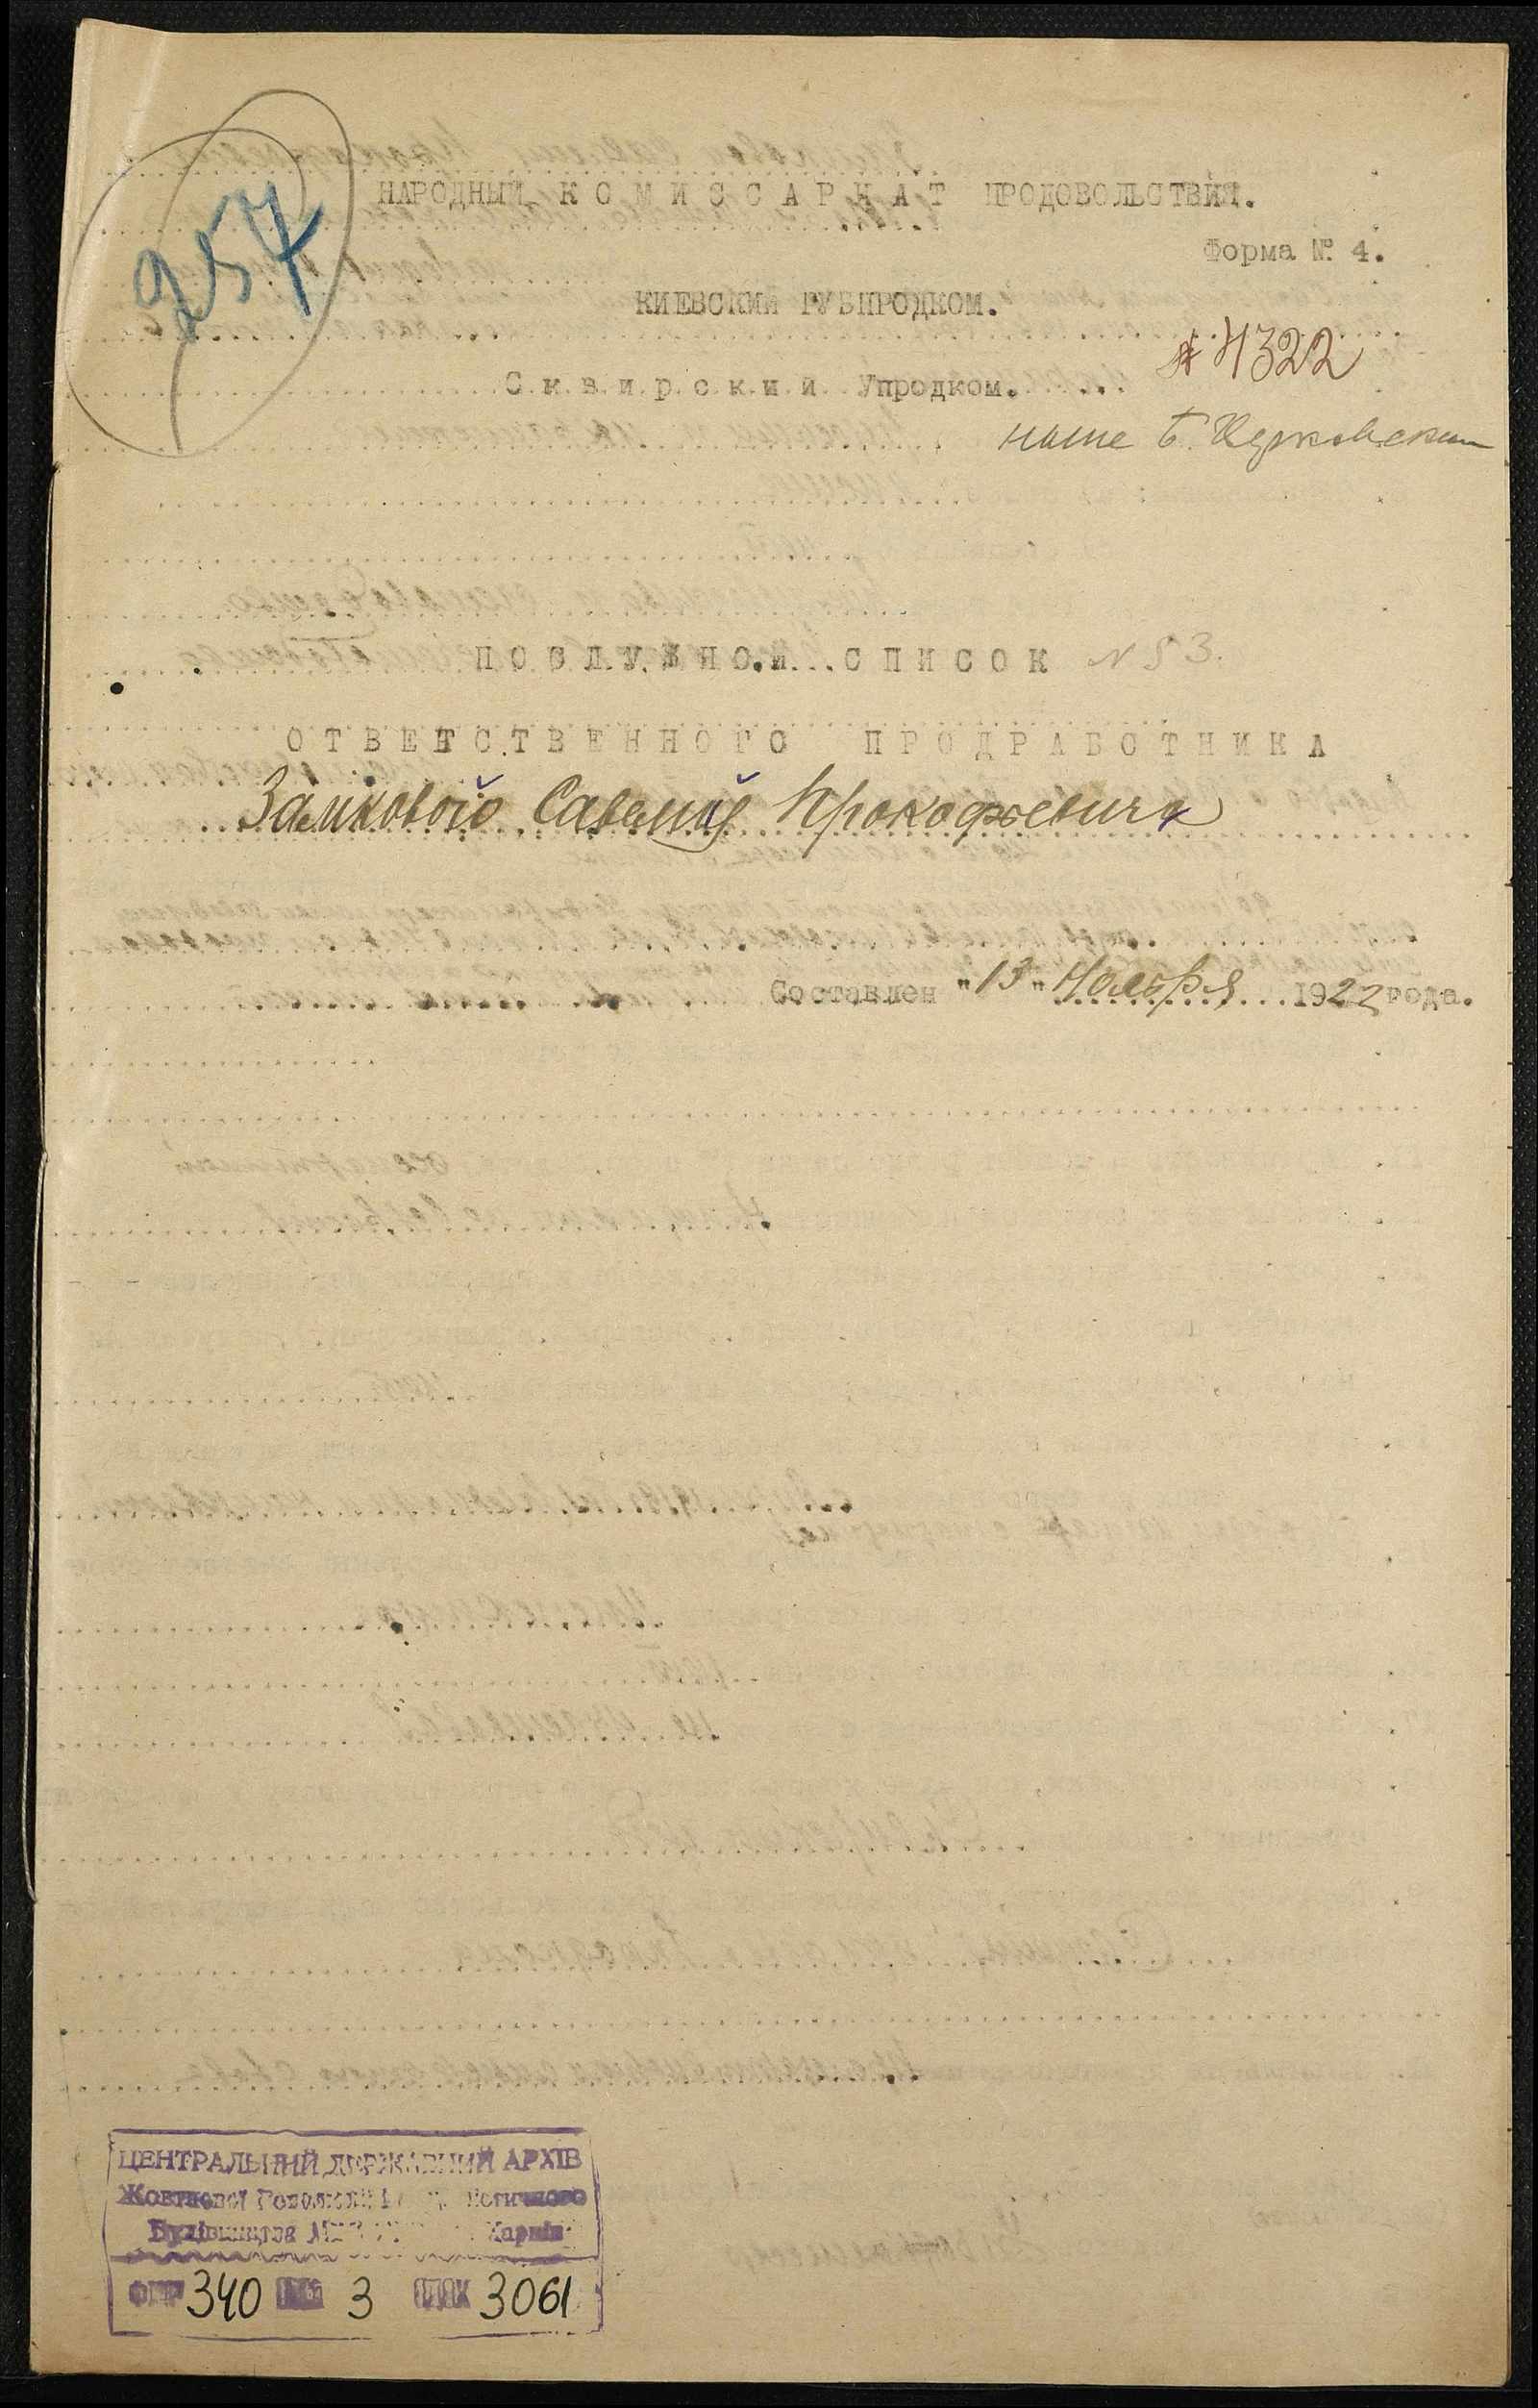 257
НАРОДНЫЙ КОМИССАРИАТ ПРОДОВОЛЬСТВИЯ.
Форма №. 4.
КИЕВСКИЙ ГУБПРОДКОМ.
№ 4322
Сквирский Упродком.
ныне Б. Церковский
ПОСЛУЖНОЙ СПИСОК № 53.
ОТВЕТСТВЕННОГО ПРОДРАБОТНИКА
Замкового Савелия Прокофьевича
Составлен "13" Ноября 1922 года.
ЦЕНТРАЛЬНИЙ ДЕРЖАВНИЙ АРХІВ
Жовтневої Революції
Будівництва Харків
340 3 3061